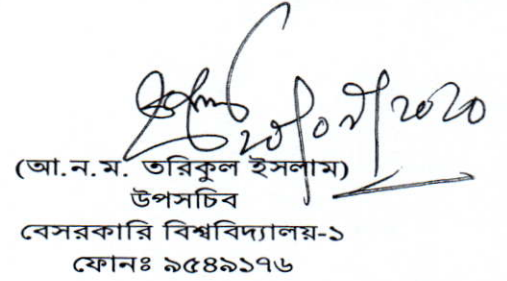 ২০/০৯/২০২০
(আ.ন.ম. তরিকুল ইসলাম)
উপসচিব
বেসরকারি বিশ্ববিদ্যালয়-১
ফোনঃ ৯৫৪৯১৭৬